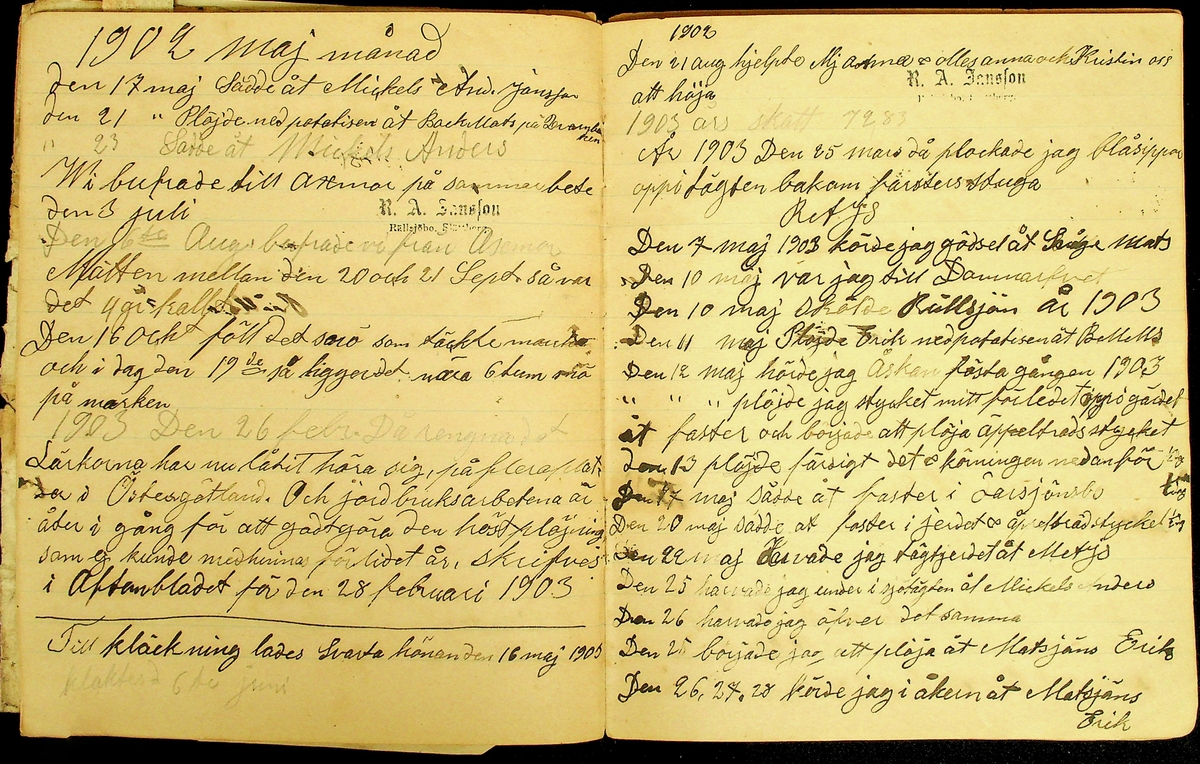 1902 maj månad
Den 17 maj Sådde åt Mickels And. Jansson
den 21 " Plöjde ned potatisen åt Back Mats på
" 23 Sådde åt Mickels Anders
Wi bufrade till Axmor på sommarbete
den 3 juli
R. A. Jansson
Rällsjöbo,
Den 6te Aug. bufrade vi från Axmor
Natten mellan den 20 och 21 Sept. så var
det
Den 16 Ockt föll det snö som täckte marken
och i dag den 19de så ligger det nära 6 tum snö
på marken
1903 Den 26 febr. Då rengnade det
Lärkorna har nu låtit höra sig, på flera plat-
ser i Östergötland. Och jordbruksarbetena är
åter i gång för att godtgöra den höstplöjning
som ej kunde medhinnas förlidet år, skrifves
i Aftonbladet för den 28 februari 1903
Till kläckning lades Svarta hönan den 16 maj 1903
kläkterd 6te juni
1902
Den 21 aug hjelpte Mj anna o Olles anna och Kristin oss
R. A. Jansson
att höja
1903 års skatt 7283
År 1903 Den 25 mars då plockade jag blåsippor
oppi tägten bakom farsters stuga
Retys
Den 7 maj 1903 körde jag gödsel åt Mats
Den 10 maj var jag till Domnarfvet
Den 10 maj Rällsjön år 1903
Den 11 maj Plöjde Erik ned potatisen åt
Den 12 maj hörde jag Åskan första gången 1903
" " " plöjde jag stycket mitt för ledet oppi gärdet
åt faster och började att plöja äppelträdsstycket
Den 13 plöjde färdigt det o körningen nedanför
Den 17 maj sådde åt faster i
Den 20 maj sådde åt faster i jerdet o äppelträdstycket
Den 22 maj jag åt Metys
Den 25 harvade jag under i sjötägten åt Mickels Anders
Den 26 harvade jag öfver det samma
Den 25 började jag att plöja åt Matsjäns Erik
Den 26, 27, 28 körde jag i åkern åt Matsjäns
Erik